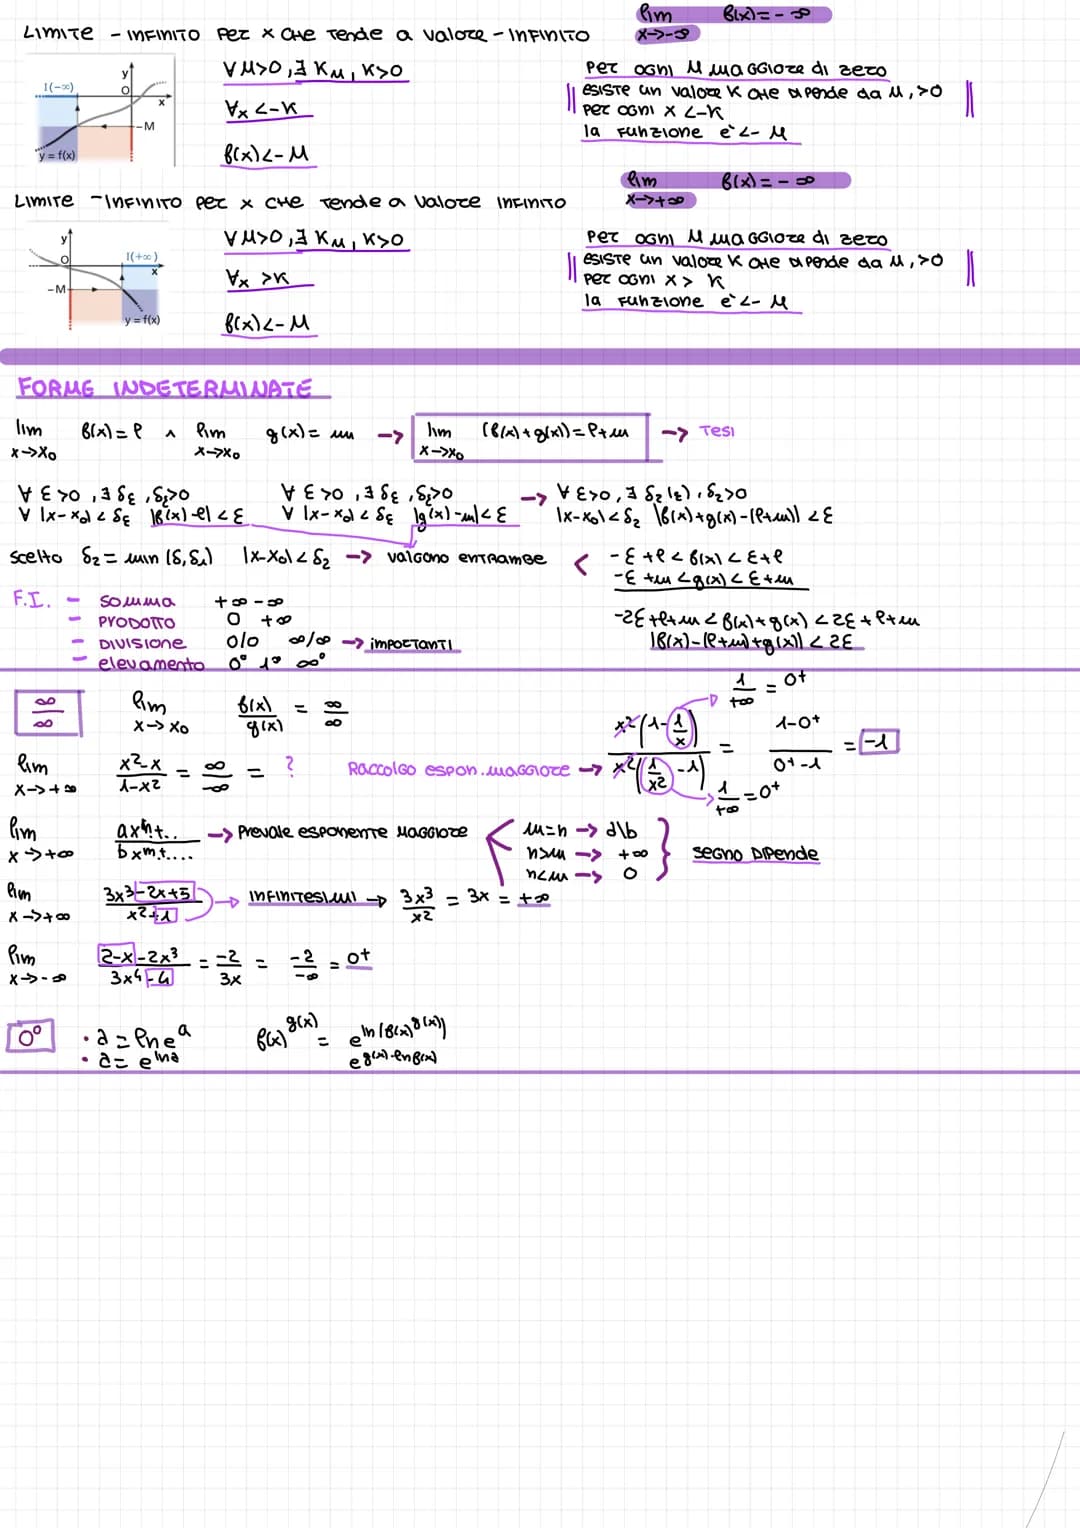 lim f(x) = - ∞
x->-∞
Limite - infinito per x che tende a valore - infinito
∀ M>0, ∃ K_M, K>0
∀x <-K
f(x)<- M
Per ogni M maggiore di zero
esiste un valore K che dipende da M, >0
per ogni x <-K
la funzione è <- M
I(-∞) y O x -M y = f(x)
lim f(x) = - ∞
x->+∞
Limite -infinito per x che tende a valore infinito
∀ M>0, ∃ K_M, K>0
∀x >K
f(x)<- M
Per ogni M maggiore di zero
esiste un valore K che dipende da M, >0
per ogni x > K
la funzione è <- M
y O I(+∞) x -M y = f(x)
FORME INDETERMINATE
lim f(x) = l ∧ lim g(x) = m -> lim (f(x)+g(x)) = l+m -> Tesi
x->x₀ x->x₀ x->x₀
∀ ε>0, ∃ δε, δε>0 ∀ ε>0, ∃ δε, δε>0 -> ∀ ε>0, ∃ δ₂(ε), δ₂>0
∀ |x-x₀| < δε |f(x)-l| < ε ∀ |x-x₀| < δε |g(x)-m| < ε |x-x₀| < δ₂ |f(x)+g(x)-(l+m)| < ε
scelto δ₂ = min (δ, δ₁) |x-x₀| < δ₂ -> valgono entrambe < -ε + l < f(x) < ε + l
-ε + m < g(x) < ε + m
-2ε + l + m < f(x) + g(x) < 2ε + l + m
|f(x)-(l+m)+g(x)| < 2ε
F.I. - somma +∞ -∞
- prodotto 0 +∞
- divisione 0/0 ∞/∞ -> importanti
- elevamento 0⁰ 1^∞ ∞⁰
∞/∞ lim f(x)/g(x) = ∞/∞
x->x₀
lim x²-x / 1-x² = ∞/-∞ = ? Raccolgo espon. maggiore -> x²(1-1/x) / x²(1/x²-1) = 1-0⁺ / 0⁺-1 = -1
x->+∞
1/+∞ = 0⁺
1/+∞ = 0⁺
lim axⁿ+.. / bxᵐ+.... -> Prevale esponente maggiore < m=n -> a/b
x->+∞ n>m -> +∞
n<m -> 0
} segno dipende
lim 3x³-2x+5 / x²+1 -> infinitesimi -> 3x³/x² = 3x = +∞
x->+∞
lim 2-x-2x³ / 3x⁴-4 = -2/3x = -2/-∞ = 0⁺
x->-∞
0⁰ • a = ln e^a f(x)^g(x) = e^ln(f(x)^g(x))
• a = e^ln a e^g(x)·ln f(x)